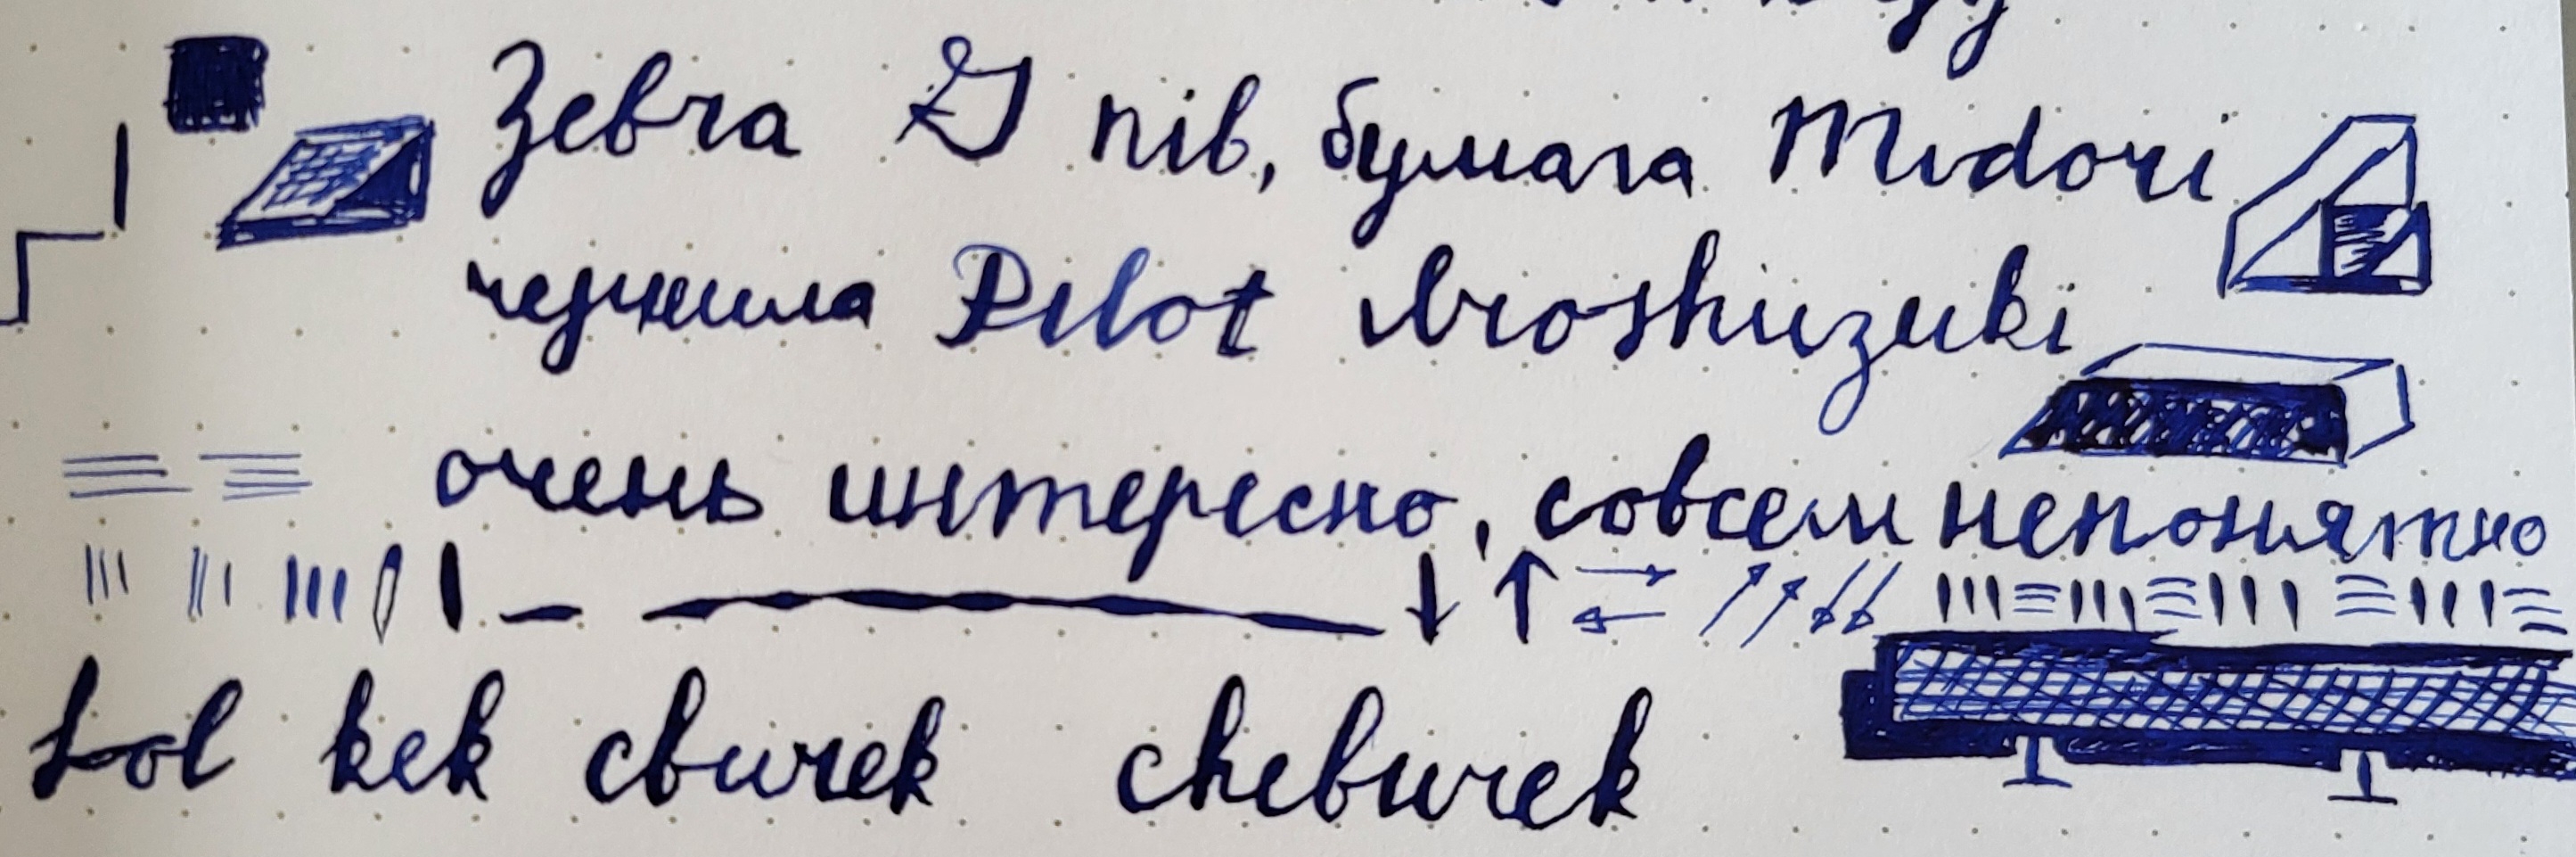 Zebra G nib, бумага Midori
чернила Pilot Iroshizuki
очень интересно, совсем непонятно
Lol kek cburek cheburek